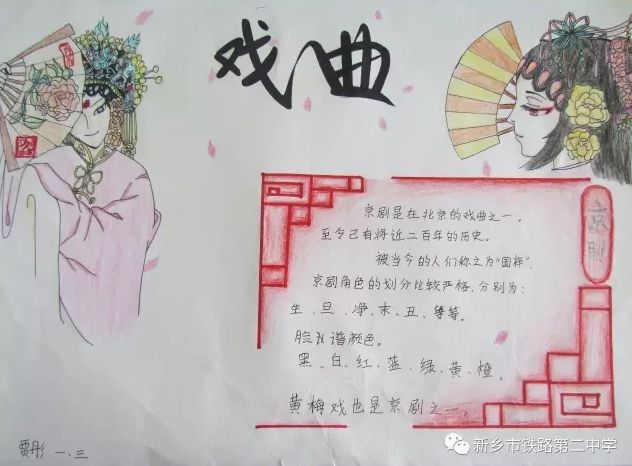 戏曲
京剧
京剧是在北京的戏曲之一。
至今已有将近二百年的历史。
被当今的人们称之为"国粹".
京剧角色的划分比较严格,分别为:
生、旦、净、末、丑、等等。
脸谱颜色。
黑、白、红、蓝、绿、黄、橙。
黄梅戏也是京剧之一。
贾彤 一.三
新乡市铁路第二中学